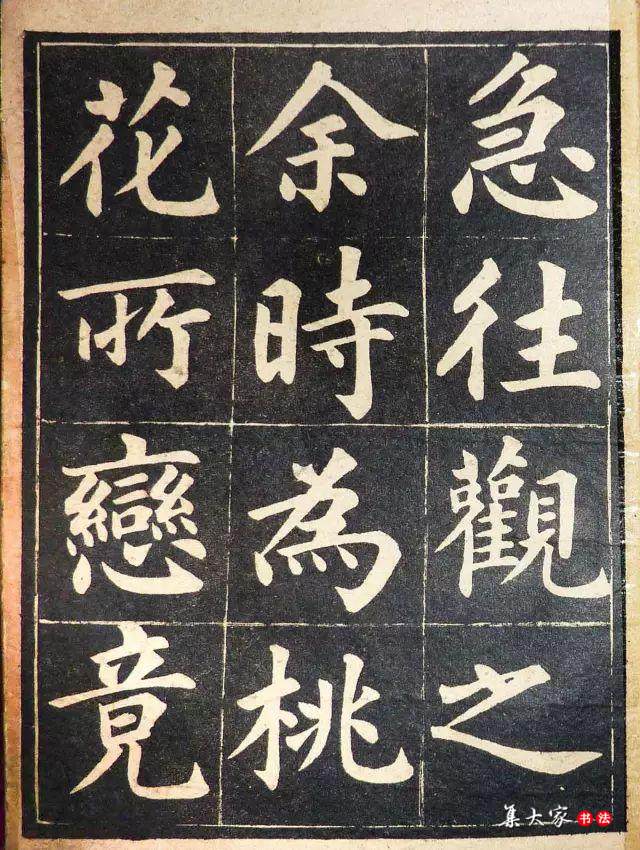 急往觀之
余時為桃
花所戀竟
集大家书法